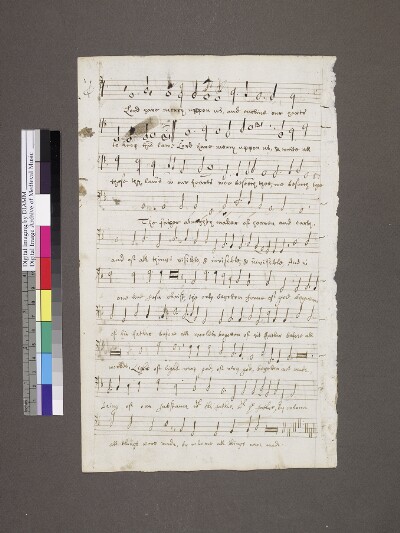 Lord have mercy uppon us, and encline our hearts
to keep this law: Lord have mercy uppon us, & write all
these thy lawes in our hearts wee beseech thee, wee beseech thee
The father almighty, maker of heaven and earth,
and of all things visible & invisible & invisible. And in
one lord Jesu christ, the only begotten sonne of god begotten
of his father before all worlds begotten of his father before all
worlds, Light of light very god, of very god, begotten not made
Being of one substance of the father, of the father, by whome
all things were made, by whome all things were made
Digital Imaging by DIAMM
Digital Image Archive of Medieval Music